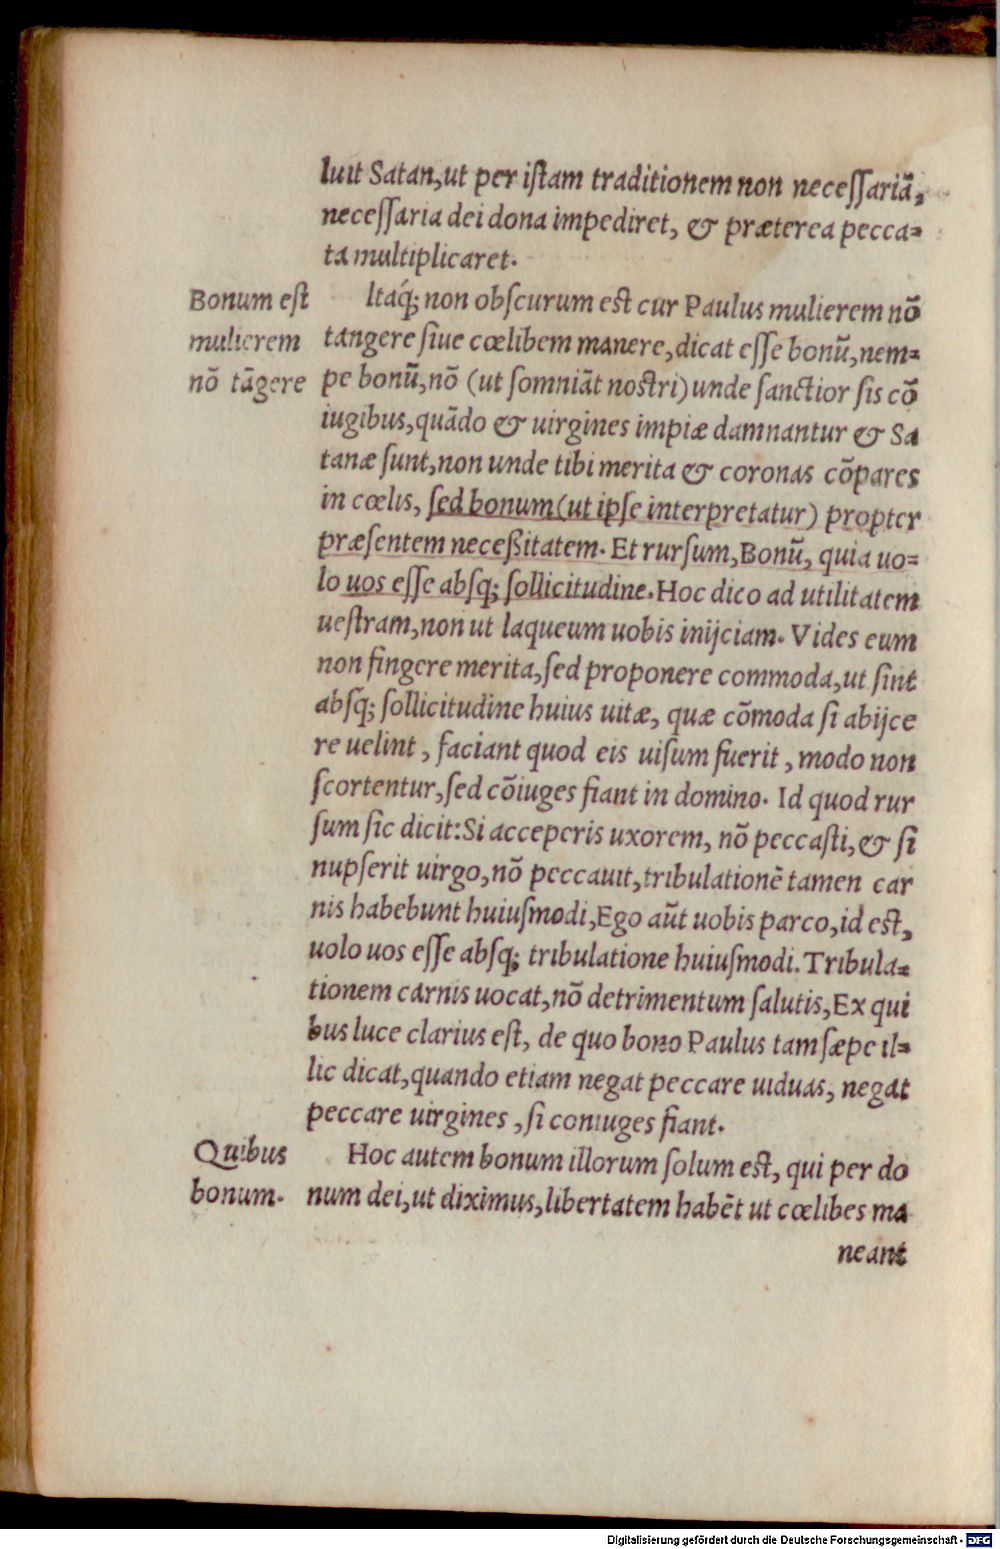 luit Satan,ut per iſtam traditionem non neceſſariā,
neceſſaria dei dona impediret, & præterea pecca=
ta multiplicaret.
Bonum eſt
mulierem
nō tāgere
Itaq́; non obſcurum eſt cur Paulus mulierem nō
tangere ſiue cœlibem manere,dicat eſſe bonū,nem=
pe bonū,nō (ut ſomniāt noſtri) unde ſanctior ſis cō
iugibus,quādo & uirgines impiæ damnantur & Sa
tanæ ſunt,non unde tibi merita & coronas cōpares
in cœlis, ſed bonum (ut ipſe interpretatur) propter
præſentem neceßitatem. Et rurſum,Bonū, quia uo=
lo uos eſſe abſq; ſollicitudine.Hoc dico ad utilitatem
ueſtram,non ut laqueum uobis inijciam. Vides eum
non fingere merita,ſed proponere commoda,ut ſint
abſq; ſollicitudine huius uitæ, quæ cōmoda ſi abijce
re uelint , faciant quod eis uiſum fuerit , modo non
ſcortentur,ſed cōiuges fiant in domino. Id quod rur
ſum ſic dicit:Si acceperis uxorem, nō peccaſti,& ſi
nupſerit uirgo,nō peccauit,tribulationē tamen car
nis habebunt huiuſmodi,Ego aūt uobis parco,id eſt,
uolo uos eſſe abſq; tribulatione huiuſmodi.Tribula=
tionem carnis uocat,nō detrimentum ſalutis,Ex qui
bus luce clarius eſt, de quo bono Paulus tam ſæpe il=
lic dicat,quando etiam negat peccare uiduas, negat
peccare uirgines ,ſi coniuges fiant.
Quibus
bonum.
Hoc autem bonum illorum ſolum eſt, qui per do
num dei,ut diximus,libertatem habēt ut cœlibes ma
neant
Digitalisierung gefördert durch die Deutsche Forschungsgemeinschaft - DFG